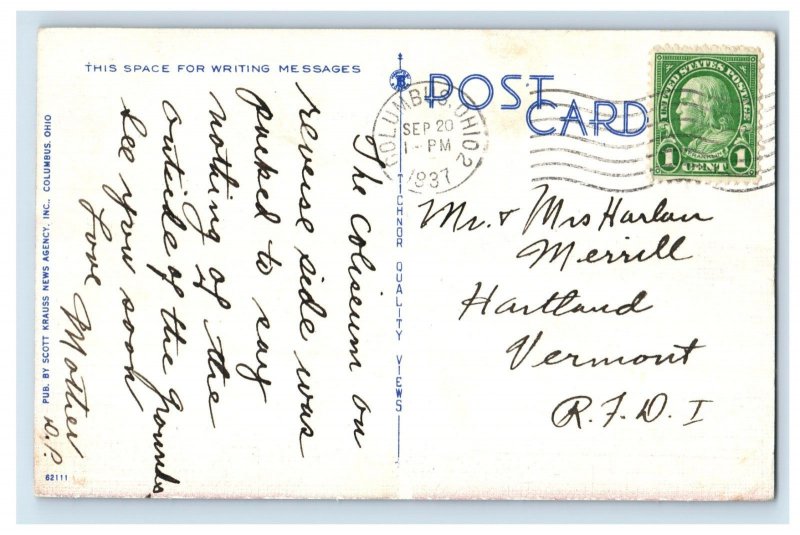 THIS SPACE FOR WRITING MESSAGES
POST
CARD
COLUMBUS, OHIO 2
SEP 20
1-PM
1937
UNITED STATES POSTAGE
FRANKLIN
1 CENT 1
The Coliseum on
reverse side was
packed to say
nothing of the
outside of the grounds.
See you soon
Love Mother
D.P.
Mr. & Mrs Harlan
Merrill
Hartland
Vermont
R.F.D. 1
TICHNOR QUALITY VIEWS
PUB. BY SCOTT KRAUSS NEWS AGENCY, INC., COLUMBUS, OHIO
62111